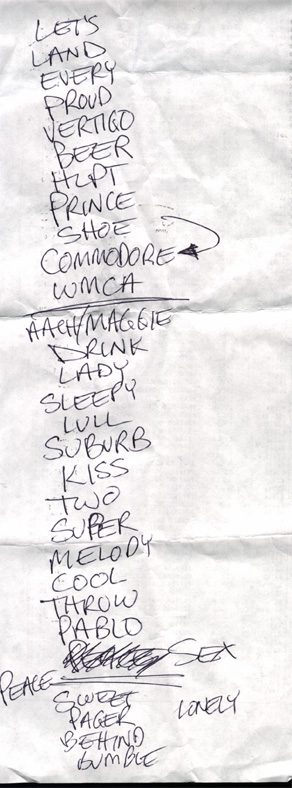 LET'S
LAND
EVERY
PROUD
VERTIGO
BEER
PRINCE
SHOE
COMMODORE
WMCA
AACH/MAGGIE
DRINK
LADY
SLEEPY
LULL
SUBURB
KISS
TWO
SUPER
MELODY
COOL
THROW
PABLO
SEX
PEACE
SWEET
PAGER LONELY
BEHIND
BUMBLE